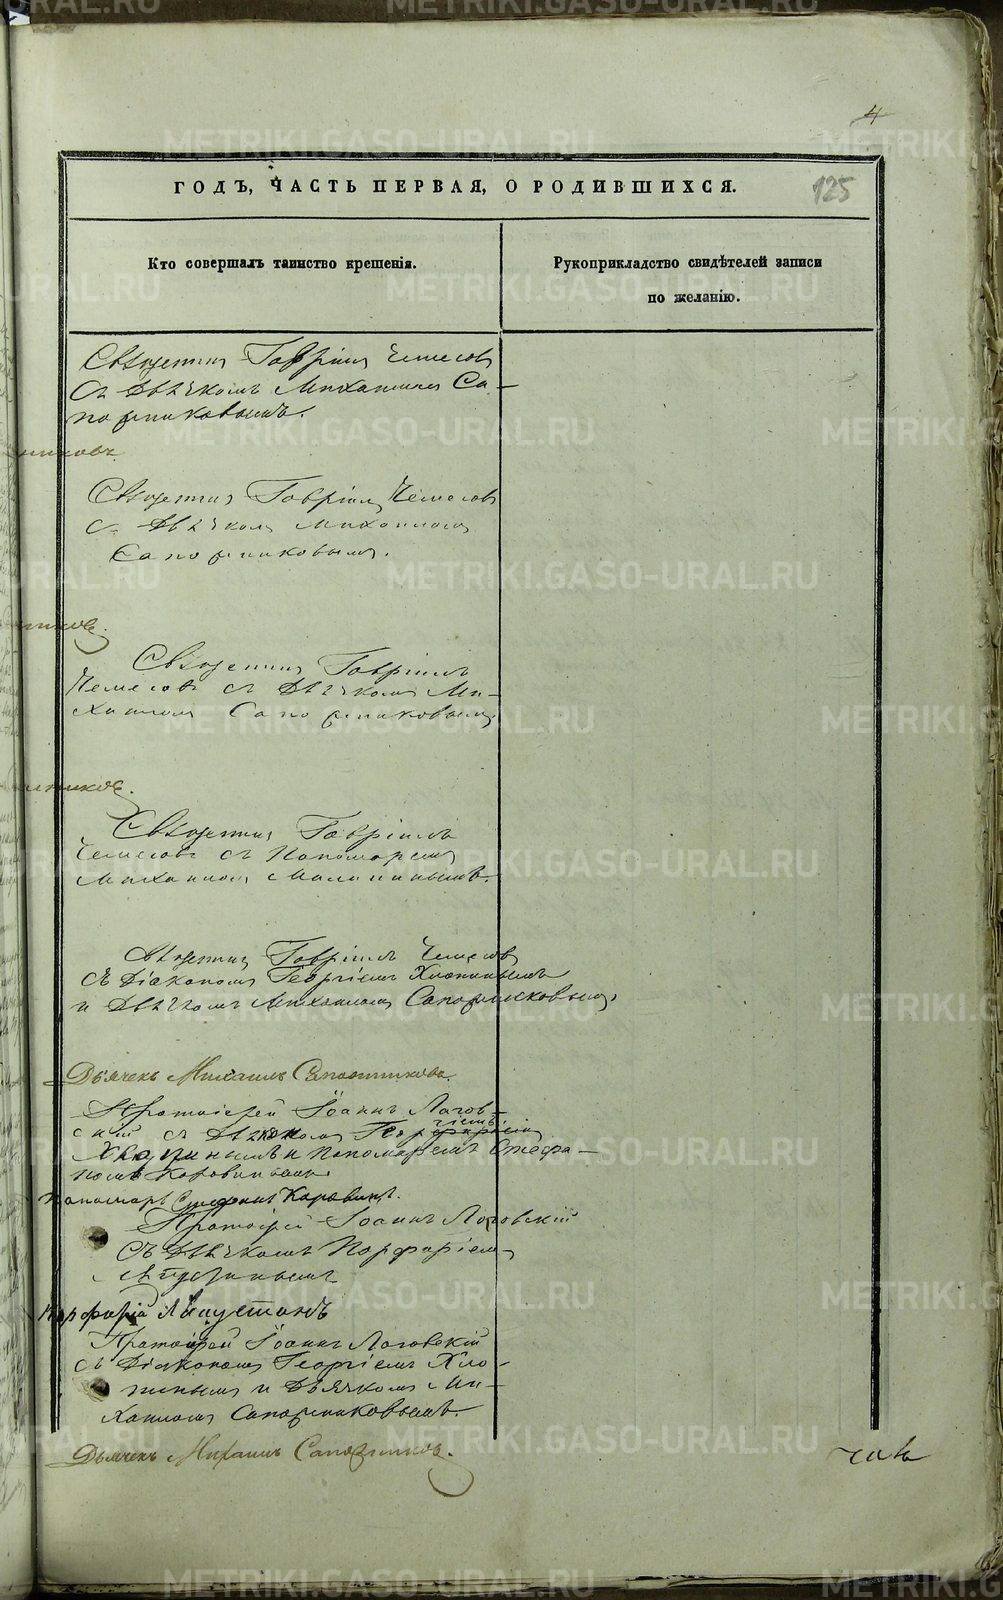 4
125
ГОДЪ, ЧАСТЬ ПЕРВАЯ, О РОДИВШИХСЯ.
Кто совершалъ таинство крещенія.
Рукоприкладство свидѣтелей записи
по желанію.
Священникъ Гавріилъ Чемесовъ
Съ Дьячкомъ Михаиломъ Са-
пожниковымъ.
никовъ
Священникъ Гавріилъ Чемесовъ
съ Дьячкомъ Михаиломъ
Сапожниковымъ.
никовъ.
Священникъ Гавріилъ
Чемесовъ съ Дьячкомъ Ми-
хаиломъ Сапожниковымъ
никовъ.
Священникъ Гавріилъ
Чемесовъ съ Пономаремъ
Михаиломъ Малининымъ.
Священникъ Гавріилъ Чемесовъ
съ Діакономъ Георгіемъ Хлопинымъ
и Дьячкомъ Михаиломъ Сапожниковымъ
Дьячекъ Михаилъ Сапожниковъ.
Протоіерей Іоаннъ Логов-
скій съ Діакономъ Георгіемъ
и Пономаремъ Стефа-
номъ Коровинымъ
Пономарь Стефанъ Коровинъ.
Протоіерей Іоаннъ Логовскій
Съ Дьячкомъ Порфиріемъ
Порфирій
Протоіерей Іоаннъ Логовскій
съ Діакономъ Георгіемъ Хло-
пинымъ и Дьячкомъ Ми-
хаиломъ Сапожниковымъ.
Дьячекъ Михаилъ Сапожниковъ.
METRIKI.GASO-URAL.RU